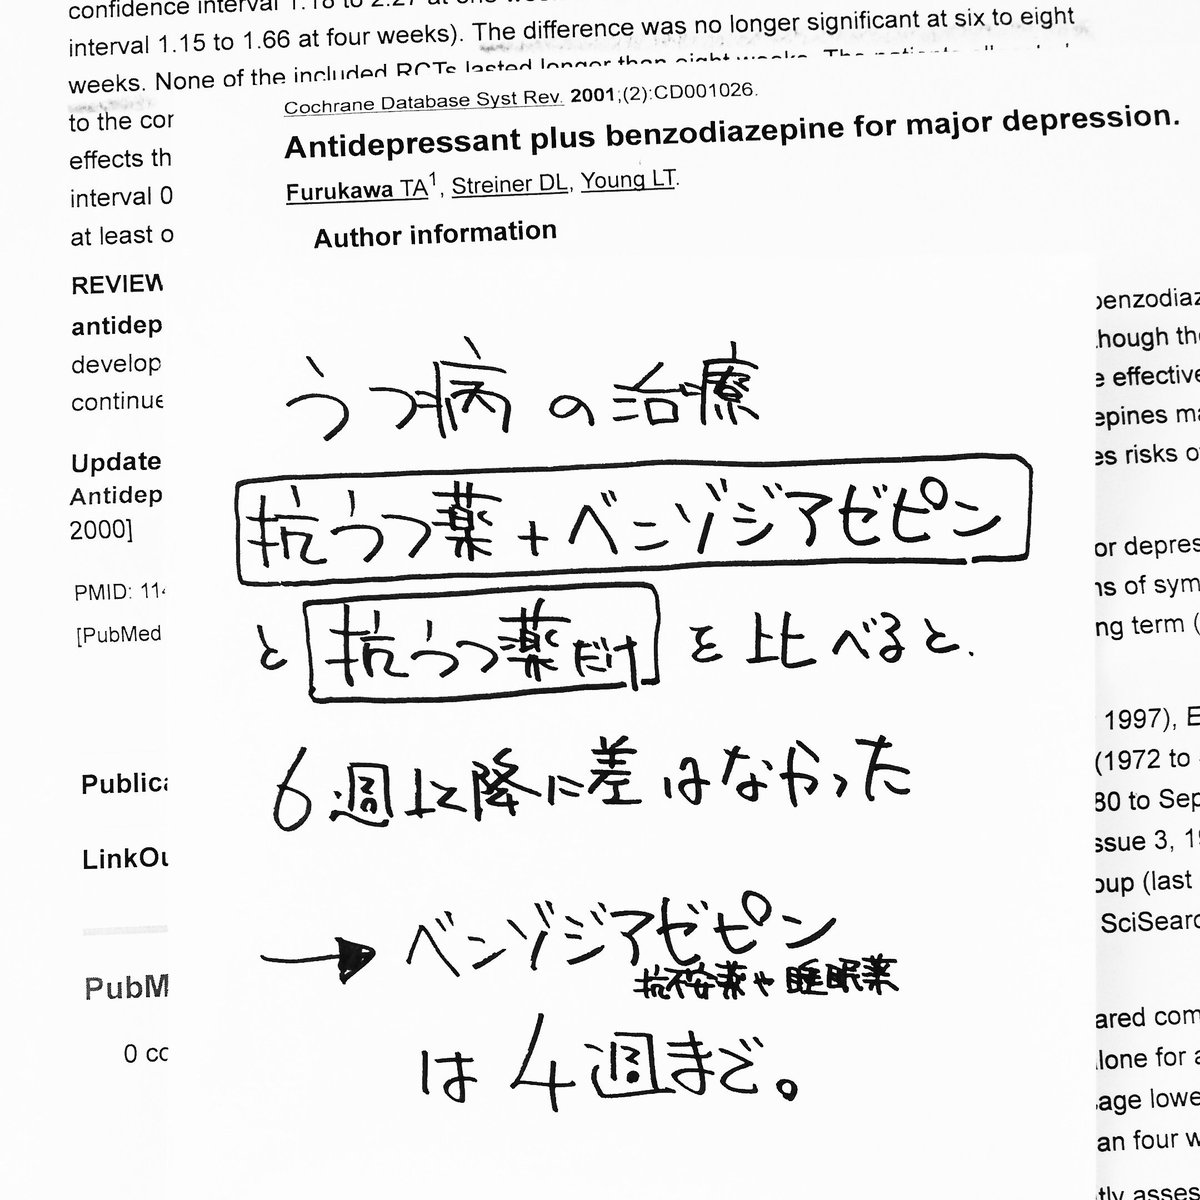 confidence interval 1.18 to 2.27 at one
interval 1.15 to 1.66 at four weeks). The difference was no longer significant at six to eight
weeks. None of the included RCTs lasted longer than eight weeks. The patients
to the cor
effects th
interval 0
at least o
REVIEW
antidep
develop
continue
Update
Antidep
2000]
PMID: 11
[PubMed
Publica
LinkOu
PubM
0 cc
Cochrane Database Syst Rev. 2001;(2):CD001026.
Antidepressant plus benzodiazepine for major depression.
Furukawa TA1, Streiner DL, Young LT.
Author information
うつ病の治療
抗うつ薬+ベンゾジアゼピン
と抗うつ薬だけを比べると、
6週以降に差はなかった
→ベンゾジアゼピン
抗不安薬や睡眠薬
は4週まで。
benzodiaz
though the
e effective
epines ma
es risks o
or depres
ns of sym
ng term (
1997), E
(1972 to
80 to Sep
ssue 3, 19
oup (last
SciSearc
ared com
lone for a
age lowe
an four w
tly asses